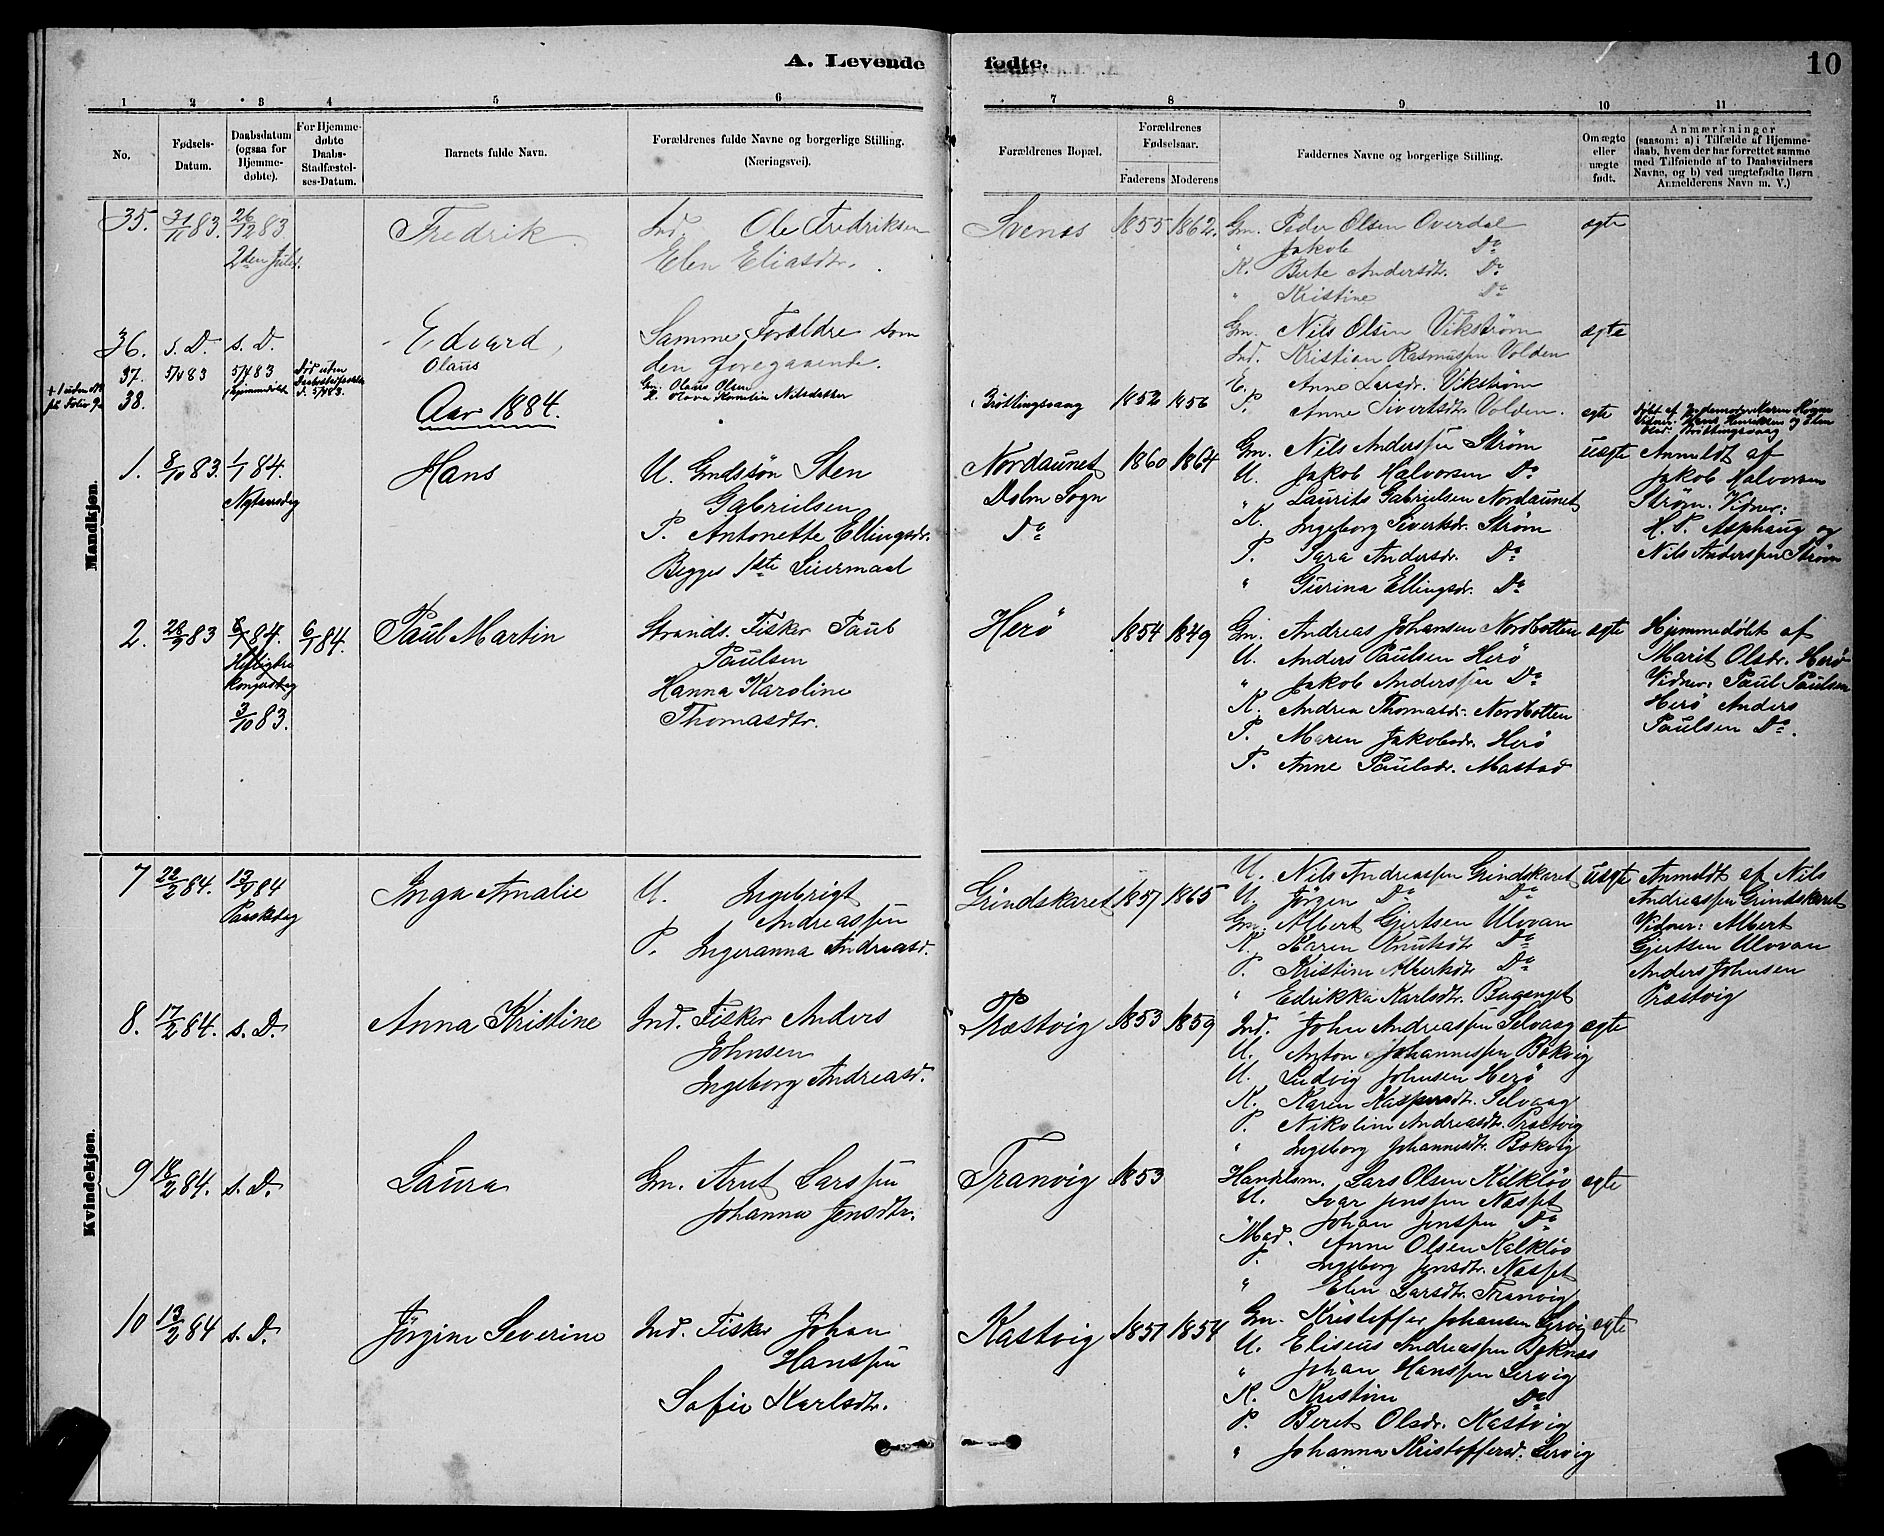 A. Levende fødte. 10
1 2 3 4 5 6 7 8 9 10 11
No.
Fødsels-
Datum.
Daabsdatum
(ogsaa for
Hjemme-
døbte).
For Hjemme-
døbte
Daabs-
Stadfæstel-
ses-Datum.
Barnets fulde Navn.
Forældrenes fulde Navne og borgerlige Stilling.
(Næringsvei).
Forældrenes Bopæl.
Forældrenes
Fødselsaar.
Faderens Moderens
Faddernes Navne og borgerlige Stilling.
Om ægte
eller
uægte
født.
Anmærkninger
(saasom: a) i Tilfælde af Hjemme-
daab, hvem der har forrettet samme
med Tilføiende af to Daabsvidners
Navne, og b) ved uægtefødte Børn
Anmelderens Navn m. V.)
Mandkjøn.
35. 31/11 83. 26/12 83
2den Juled.
Fredrik
Ind. Ole Fredriksen
Elen Eliasdtr.
Svenes 1855 1862.
Gm. Peder Olsen Overdal
" Jakob Do
K. Berte Andersdtr. Do
" Kristine Do
ægte
36. s. D. s. D.
Edvard
Samme Forældre som
den foregaaende.
Gm. Nils Olsen Vikstrøm
Ind. Kristian Rasmussen Volden
E. Anne Larsdr. Vikstrøm
P. Anne Sivertsdtr. Volden.
ægte
37. 5/4 83 5/4 83
hjemmedøbt
Død uden
Daabsstadfæstelse
d. 5/4 83.
Olaus
Gm. Olaus Olsen
K. Olava Kornelia Nilsdatter
Brøttingsvaag 1852 1856
ægte
38.
+ 1 uden No
på Folio 9
Aar 1884.
1. 8/10 83. 1/1 84.
Nytaarsdag
Hans
U. Gmdssøn Sten
Gabrielsen
P. Antonette Ellingsdr.
Begges 1ste Leiermaal
Nordaunet
Dolm Sogn
Do
1860 1864
Gm. Nils Anderssen Strøm
U. Jakob Halvorsen Do
" Laurits Gabrielsen Nordaunet
K. Ingeborg Sivertsdr. Strøm
P. Sara Andersdr. Do
" Gurina Ellingsdr. Do
uægte
Anmeldt af
Jakob Halvorsen
Strøm. Vidner:
H. P. Asphaug og
Nils Anderssen Strøm
2. 28/9 83 6/1 84.
Helligtre
kongersdag
3/10 83.
6/1 84.
Paul Martin
Strands. Fisker Paul
Paulsen
Hanna Karoline
Thomasdtr.
Herø 1854 1849
Gm. Andreas Johansen Nordbotten
U. Anders Paulsen Herø
" Jakob Anderssen Do
K. Andrea Thomasdr. Nordbotten
P. Maren Jakobsdr. Herø
P. Anne Paulsdr. Mastad
ægte
Hjemmedøbt af
Marit Olsdr. Herø
Vidner: Paul Paulsen
Herø Anders
Paulsen Do.
Kvindekjøn.
7 22/2 84. 13/4 84
Paaskedag
Inga Amalie
U. Ingebrigt
Andreassen
P. Ingeranna Andreasd.
Grindskaret 1857 1865
U. Nils Andreassen Grindskaret
U. Jörgen Do Do
Gm. Albert Gjertsen Ulovan
K. Karen Knutsdtr. Do
P. Kristine Albertsdtr. Do
" Edrikka Karlsdtr. Bugenget
uægte
Anmeldt af Nils
Andreassen Grindskaret
Vidner: Albert
Gjertsen Ulovan
Anders Johnsen
Præstvig
8. 17/2 84. s. D.
Anna Kristine
Ind. Fisker Anders
Johnsen
Ingeborg Andreasd.
Præstvig 1853 1859
Ind. John Andreassen Selvaag
U. Anton Johannessen Bokvig
U. Ludvig Johnsen Herø
K. Karen Kaspersdtr. Selvaag
P. Nikoline Andreasdtr. Præstvig
" Ingeborg Johannesdtr. Bokvig
ægte
9 18/2 84. s. D.
Laura
Gm. Arnt Larssen
Johanna Jensdtr.
Tranvig 1853
Handelsm. Lars Olsen Kalkløv
U. Ivar Jenssen Næsset
" Johan Jenssen Do
Mad. Anne Olsen Kalkløv
P. Ingeborg Jensdtr. Næsset
" Elen Larsdtr. Tranvig
ægte
10 13/2 84 s. D.
Jørgine Severine
Ind. Fisker Johan
Hanssen
Sofie Karlsdtr.
Kastvig 1851 1854
Gm. Kristoffer Johansen Lervig
U. Eliseus Andreassen Boknæs
" Johan Hanssen Lervig
K. Kristine Do
P. Beret Olsdr. Kastvig
" Johanna Kristoffersd. Lervig
ægte